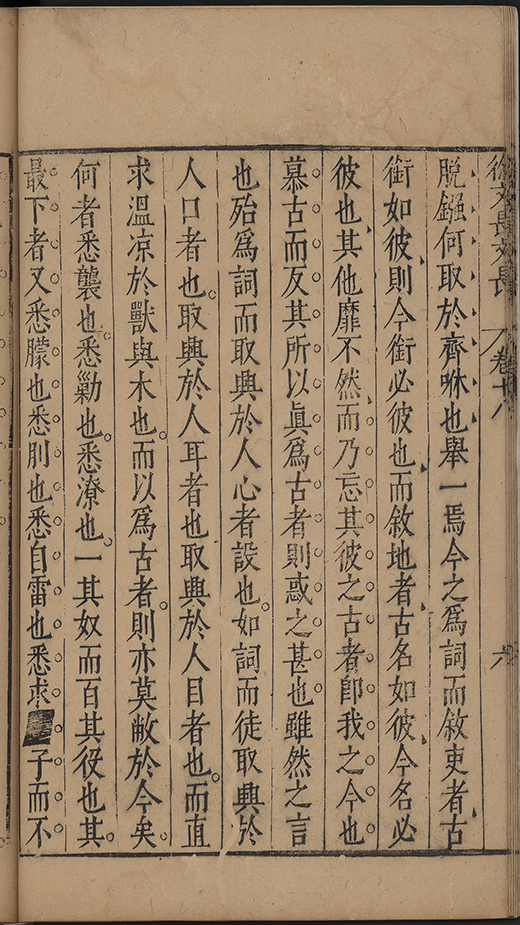 徐文長文長 卷十八 六
脫鏹何取於齊咻也舉一焉今之爲詞而敘吏者古
銜如彼則今銜必彼也而敘地者古名如彼今名必
彼也其他靡不然而乃忘其彼之古者卽我之今也
慕古而反其所以眞爲古者則惑之甚也雖然之言
也殆爲詞而取興於人心者設也如詞而徒取興於
人口者也取興於人耳者也取興於人目者也而直
求溫凉於獸與木也而以爲古者則亦莫敝於今矣
何者悉襲也悉勦也悉潦也一其奴而百其役也其
最下者又悉朦也悉刖也悉自雷也悉求 子而不